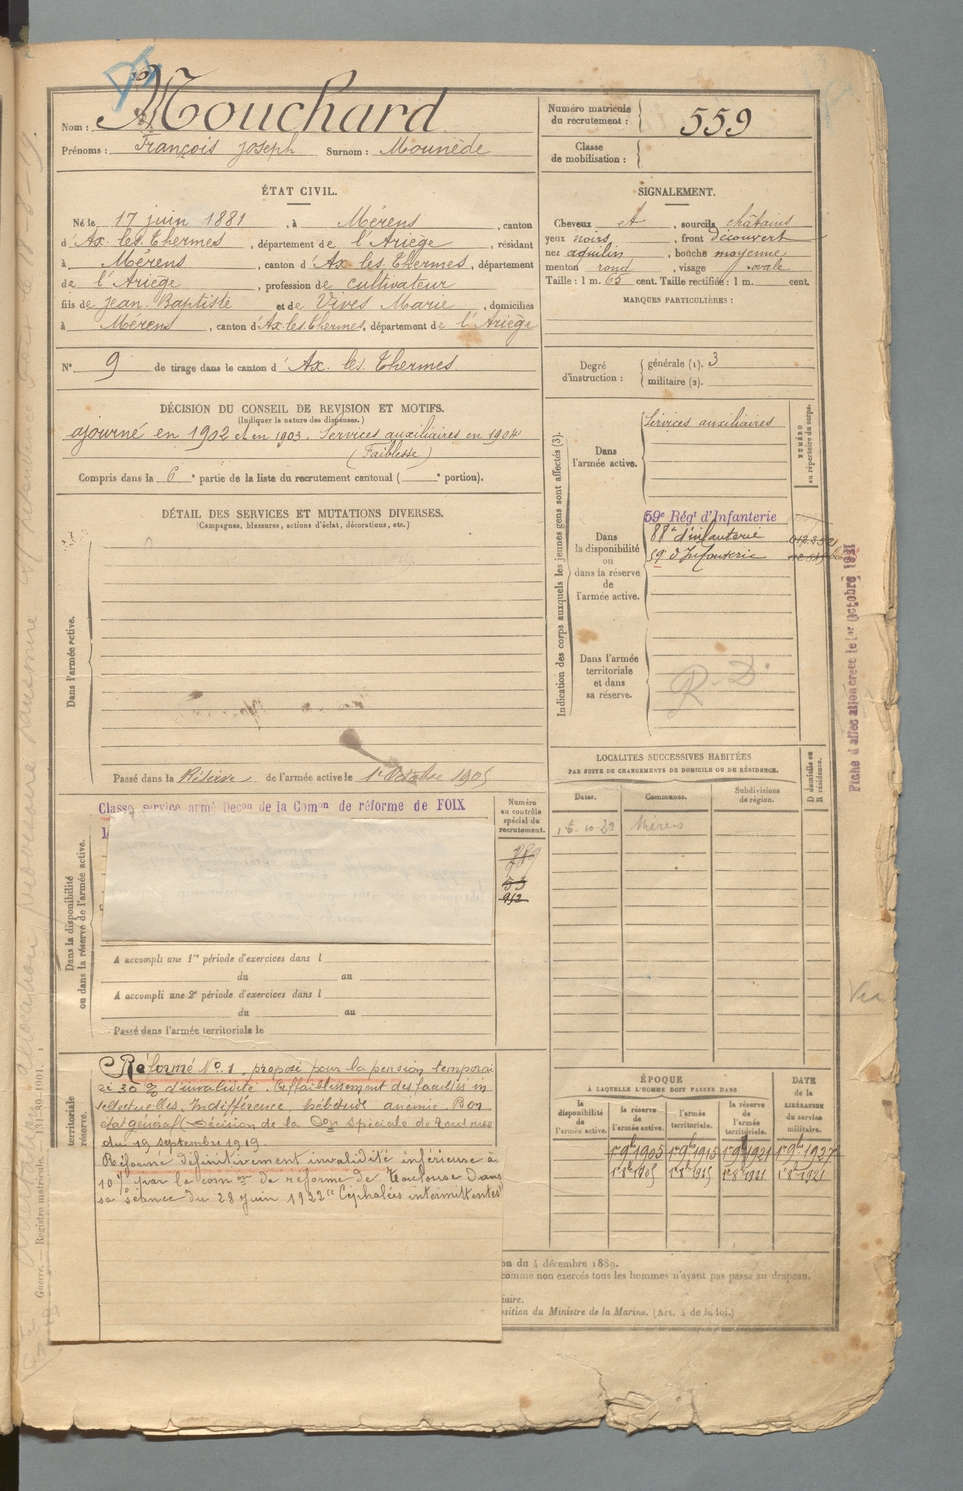 Nom : Mouchard
Prénoms : François Joseph Surnom : Mounède
Numéro matricule du recrutement : 559
Classe de mobilisation :
ÉTAT CIVIL.
Né le 17 juin 1881, à Mérens, canton
d'Ax les Thermes, département de l'Ariège, résidant
à Mérens, canton d'Ax les Thermes, département
de l'Ariège, profession de cultivateur
fils de Jean Baptiste et de Vives Marie, domiciliés
à Mérens, canton d'Ax les Thermes, département de l'Ariège
SIGNALEMENT.
Cheveux et, sourcils châtains
yeux noirs, front découvert
nez aquilin, bouche moyenne
menton rond, visage ovale
Taille : 1 m. 65 cent. Taille rectifiée : 1 m. cent.
MARQUES PARTICULIÈRES :
N° 9 de tirage dans le canton d'Ax les Thermes
Degré d'instruction : générale (1). 3
militaire (2).
DÉCISION DU CONSEIL DE REVISION ET MOTIFS.
(Indiquer la nature des dispenses.)
ajourné en 1902 et en 1903. Services auxiliaires en 1904
(Faiblesse)
Compris dans la 6e partie de la liste du recrutement cantonal ( e portion).
DÉTAIL DES SERVICES ET MUTATIONS DIVERSES.
(Campagnes, blessures, actions d'éclat, décorations, etc.)
Dans l'armée active.
Passé dans la Réserve de l'armée active le 1er Octobre 1905
Indication des corps auxquels les jeunes gens sont affectés (3).
NUMÉRO au répertoire du corps.
Dans l'armée active. Services auxiliaires
Dans la disponibilité ou dans la réserve de l'armée active.
59e Régt d'Infanterie
88e d'infanterie
59e d'Infanterie
Dans l'armée territoriale et dans sa réserve.
R. D.
Fiche d'affectation créée le 1er Octobre 1921
LOCALITÉS SUCCESSIVES HABITÉES
PAR SUITE DE CHANGEMENTS DE DOMICILE OU DE RÉSIDENCE.
Dates. Communes. Subdivisions de région. D domicile ou R résidence.
15-10-29 Mérens
Dans la disponibilité ou dans la réserve de l'armée active.
Classé service armé Décon de la Comon de réforme de FOIX
Numéro au contrôle spécial du recrutement.
789
53
912
A accompli une 1re période d'exercices dans l
du au
A accompli une 2e période d'exercices dans l
du au
Passé dans l'armée territoriale le
territoriale réserve.
Réformé N° 1. proposé pour la pension temporai
re 30 % d'invalidité. Affaiblissement des facultés in
tellectuelles. Indifférence, hébétude anémie. Bon
état général. Décision de la Con spéciale de Toulouse
du 19 septembre 1919.
Réformé définitivement invalidité inférieure à
10% par la comon de réforme de Toulouse dans
sa séance du 28 juin 1922 "Céphalées intermittentes"
ÉPOQUE
À LAQUELLE L'HOMME DOIT PASSER DANS
la disponibilité de l'armée active. la réserve de l'armée active. l'armée territoriale. la réserve de l'armée territoriale.
DATE de la LIBÉRATION du service militaire.
1er 9bre 1905 1er 9bre 1915 1er 9bre 1921 1er 9bre 1927
1er 8bre 1905 1er 8bre 1915 1er 8bre 1921
on du 4 décembre 1889.
comme non exercés tous les hommes n'ayant pas passé au drapeau.
iaire.
osition du Ministre de la Marine. (Art. 4 de la loi.)
Guerre. — Registre matricule.